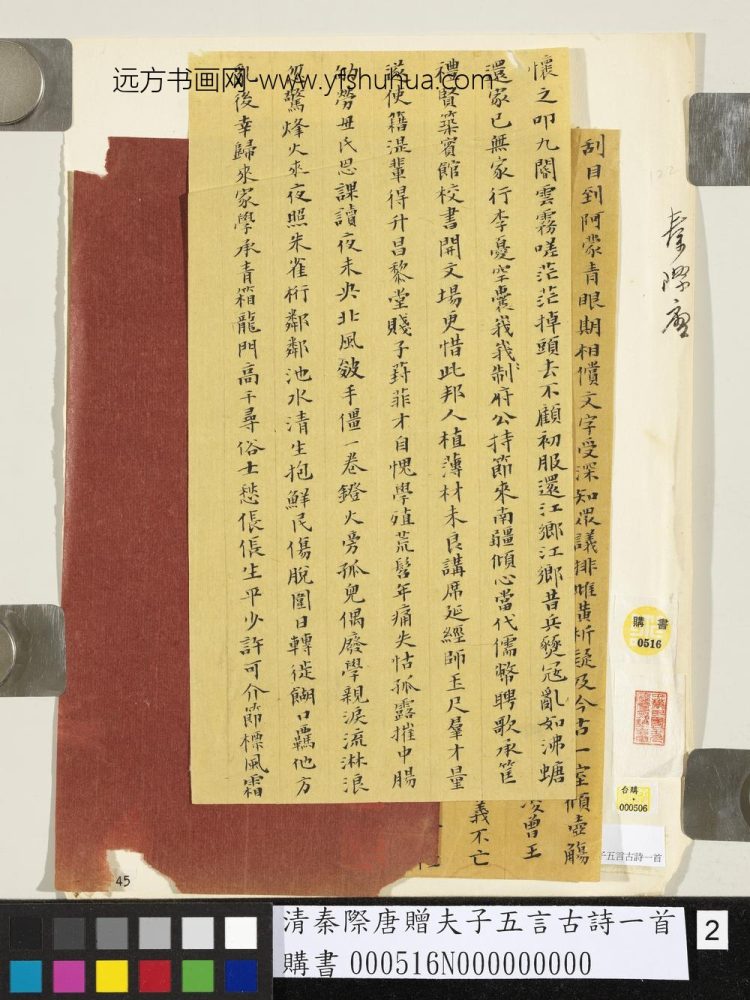 远方书画网 www.yfshuhua.com
秦際唐
刮目到阿蒙青眼期相償文字受深知眾議排雌黃析疑及今古一室傾壺觴
曾王
義不亡
懷之叩九閽雲霧嗟茫茫掉頭去不顧初服還江鄉江鄉昔兵燹寇亂如沸螗
還家已無家行李憂空囊峩峩制府公持節來南疆傾心當代儒幣聘歌承筐
禮賢築賓館校書開文場更惜此邦人植薄材未良講席延經師玉尺羣才量
遂使籍湜輩得升昌黎堂賤子葑菲才自愧學殖荒髫年痛失怙孤露摧中腸
劬勞母氏恩課讀夜未央北風皴手僵一卷鐙火旁孤兒偶廢學親淚流淋浪
忽驚烽火來夜照朱雀桁鄰鄰池水清生抱鮮民傷脫圍日轉徙餬口羈他方
亂後幸歸來家學承青箱龍門高千尋俗士愁倀倀生平少許可介節標風霜
購書
0516
台購
000506
子五言古詩一首
45
清秦際唐贈夫子五言古詩一首
購書 000516N000000000
2